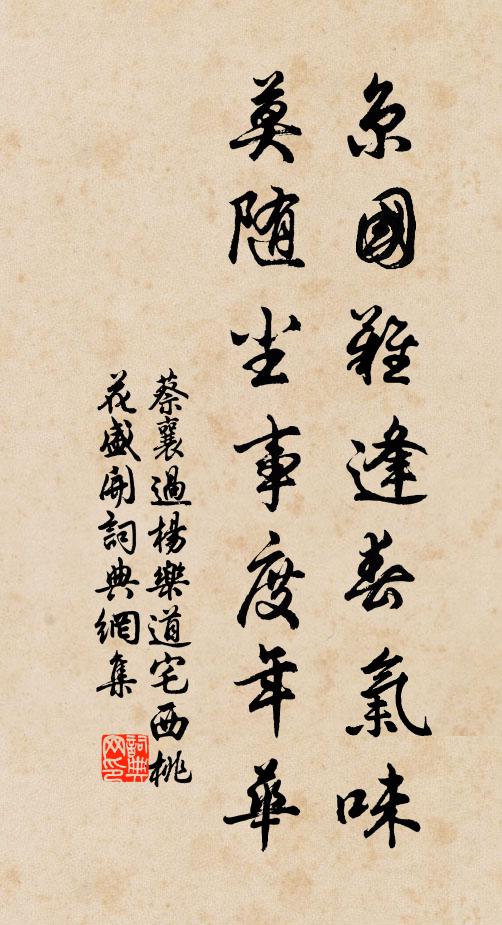 京國難逢春氣味
莫随尘事度年華
蔡襄過楊樂道宅西桃
花盛開詞典網集
詞典
网印